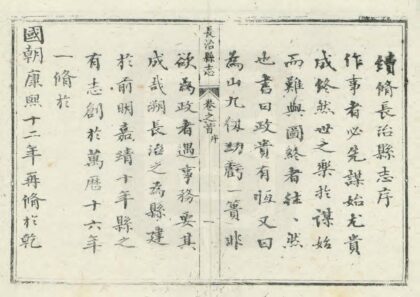 續脩長治縣志序
作事者必先謀始尤貴
成終然世之樂於謀始
而難與圖終者往〻然
也書曰政貴有恆又曰
為山九仞功虧一簣非
長治縣志
卷之首
序
一
欲為政者遇事務要其
成哉朔長治之為縣建
於前明嘉靖十年縣之
有志創於萬曆十六年
一脩於
國朝康熙十二年再脩於乾